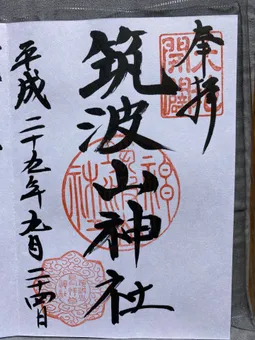 奉拝
天地開闢
筑波山神社
平成二十五年九月二十四日